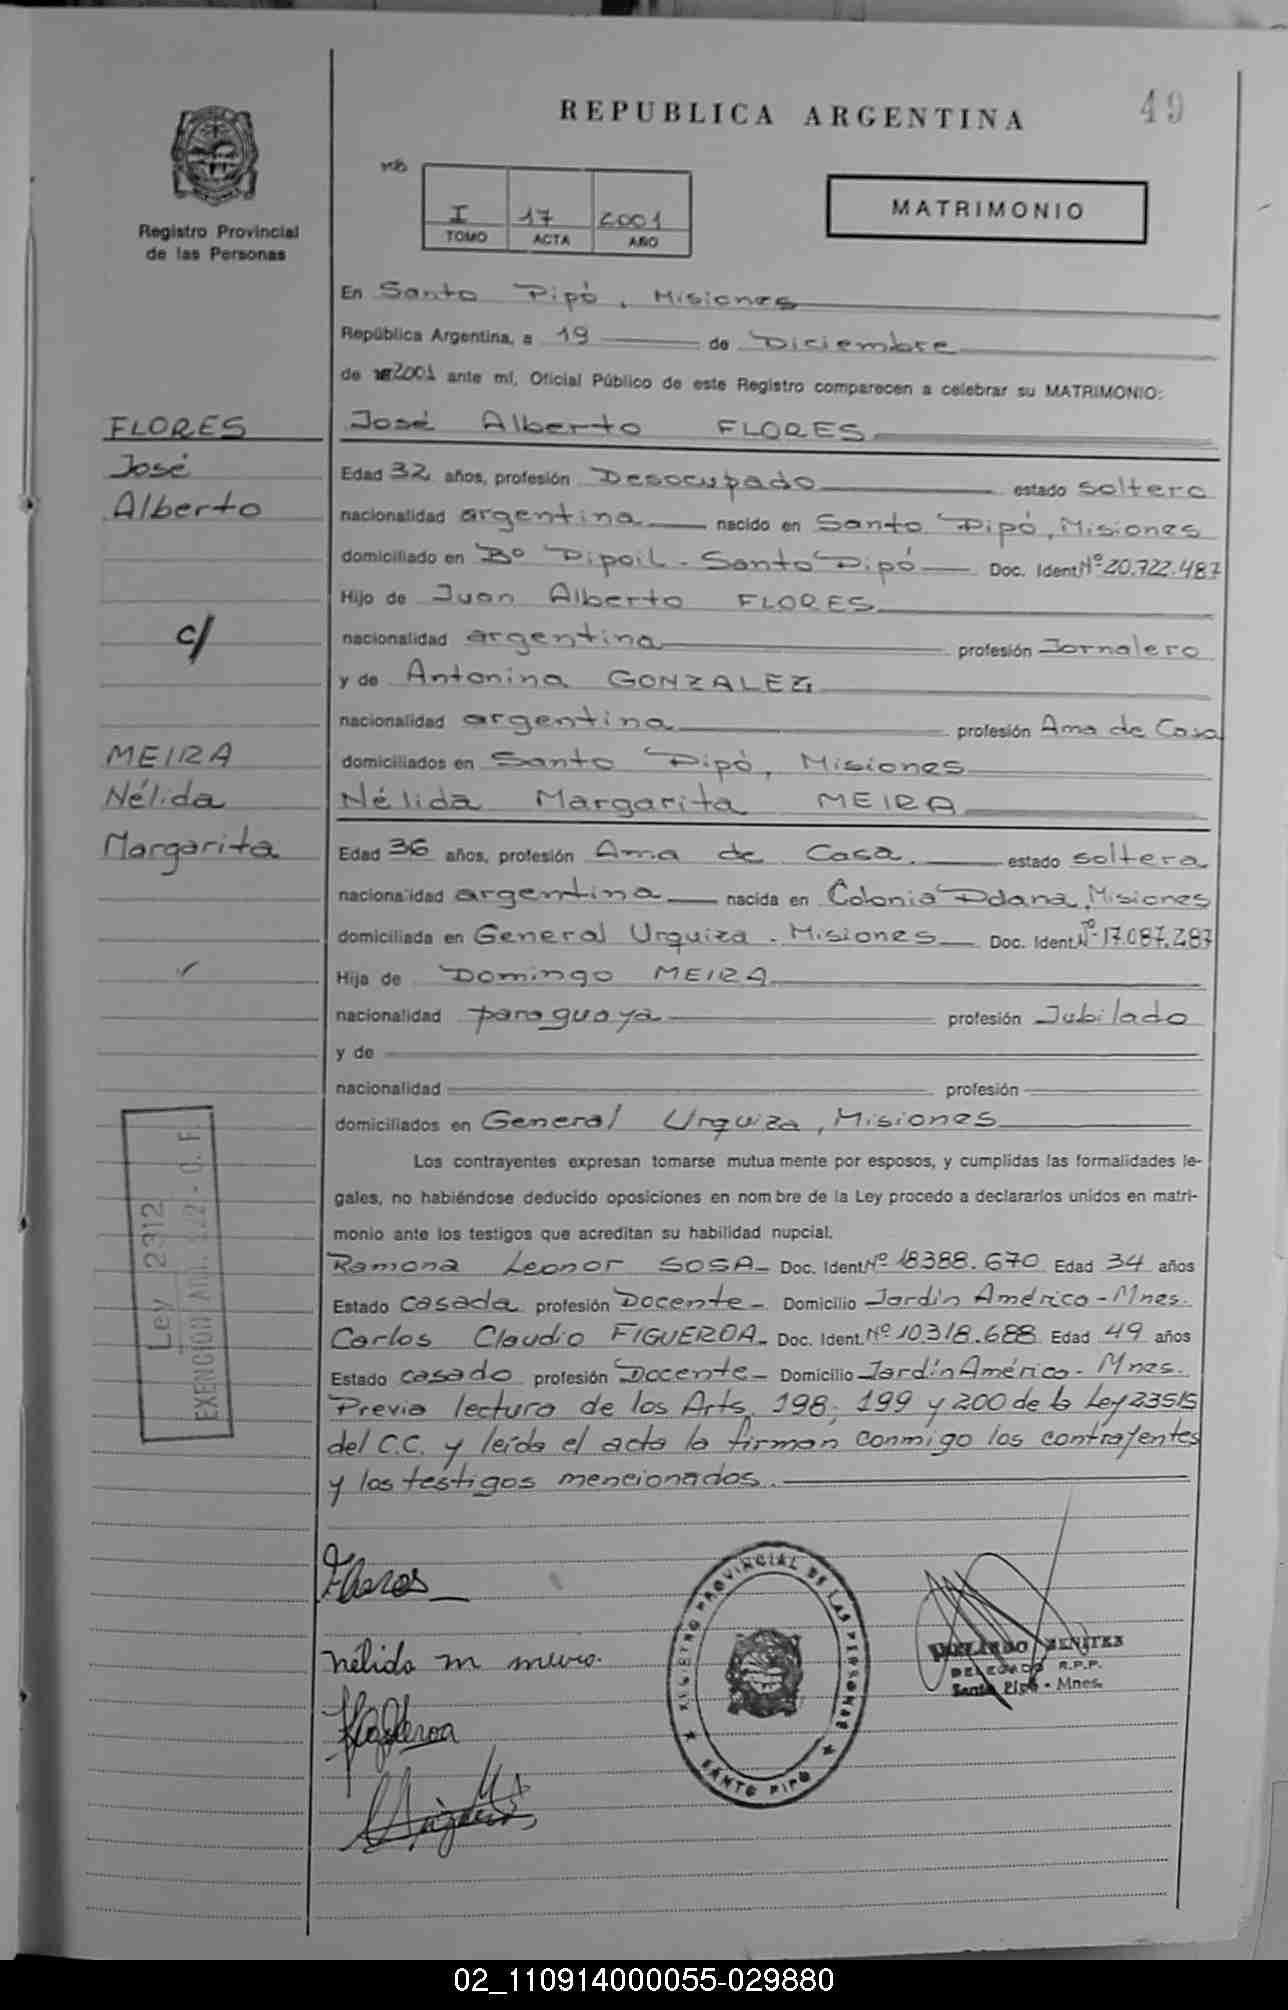 REPUBLICA ARGENTINA
49
Registro Provincial
de las Personas
I 17 2001
TOMO ACTA AÑO
MATRIMONIO
En Santo Pipó, Misiones
República Argentina, a 19 de Diciembre
de 2001 ante mí, Oficial Público de este Registro comparecen a celebrar su MATRIMONIO:
FLORES
José
Alberto
c/
MEIRA
Nélida
Margarita
José Alberto FLORES
Edad 32 años, profesión Desocupado estado soltero
nacionalidad argentina nacido en Santo Pipó, Misiones
domiciliado en Bº Pipoil - Santo Pipó Doc. Ident. Nº 20.722.487
Hijo de Juan Alberto FLORES
nacionalidad argentina profesión Jornalero
y de Antonina GONZALEZ
nacionalidad argentina profesión Ama de Casa
domiciliados en Santo Pipó, Misiones
Nélida Margarita MEIRA
Edad 36 años, profesión Ama de Casa. estado soltera
nacionalidad argentina nacida en Colonia Misiones
domiciliada en General Urquiza - Misiones Doc. Ident. Nº 17.087.287
Hija de Domingo MEIRA
nacionalidad paraguaya profesión Jubilado
y de
nacionalidad profesión
domiciliados en General Urquiza, Misiones
Los contrayentes expresan tomarse mutua mente por esposos, y cumplidas las formalidades le-
gales, no habiéndose deducido oposiciones en nom bre de la Ley procedo a declararlos unidos en matri-
monio ante los testigos que acreditan su habilidad nupcial.
Ramona Leonor SOSA - Doc. Ident. Nº 18388.670 Edad 34 años
Estado casada profesión Docente - Domicilio Jardín América - Mnes.
Carlos Claudio FIGUEROA - Doc. Ident. Nº 10.318.688 Edad 49 años
Estado casado profesión Docente - Domicilio Jardín América - Mnes.
Previa lectura de los Arts. 198, 199 y 200 de la Ley 23515
del C.C. y leída el acta la firman conmigo los contrayentes
y los testigos mencionados.
Ley 2912
EXENCION
Flores
nélida m meira.
REGISTRO PROVINCIAL DE LAS PERSONAS
SANTO PIPÓ
BENITEZ
DELEGADO R.P.P.
Santo Pipó - Mnes.
02_110914000055-029880